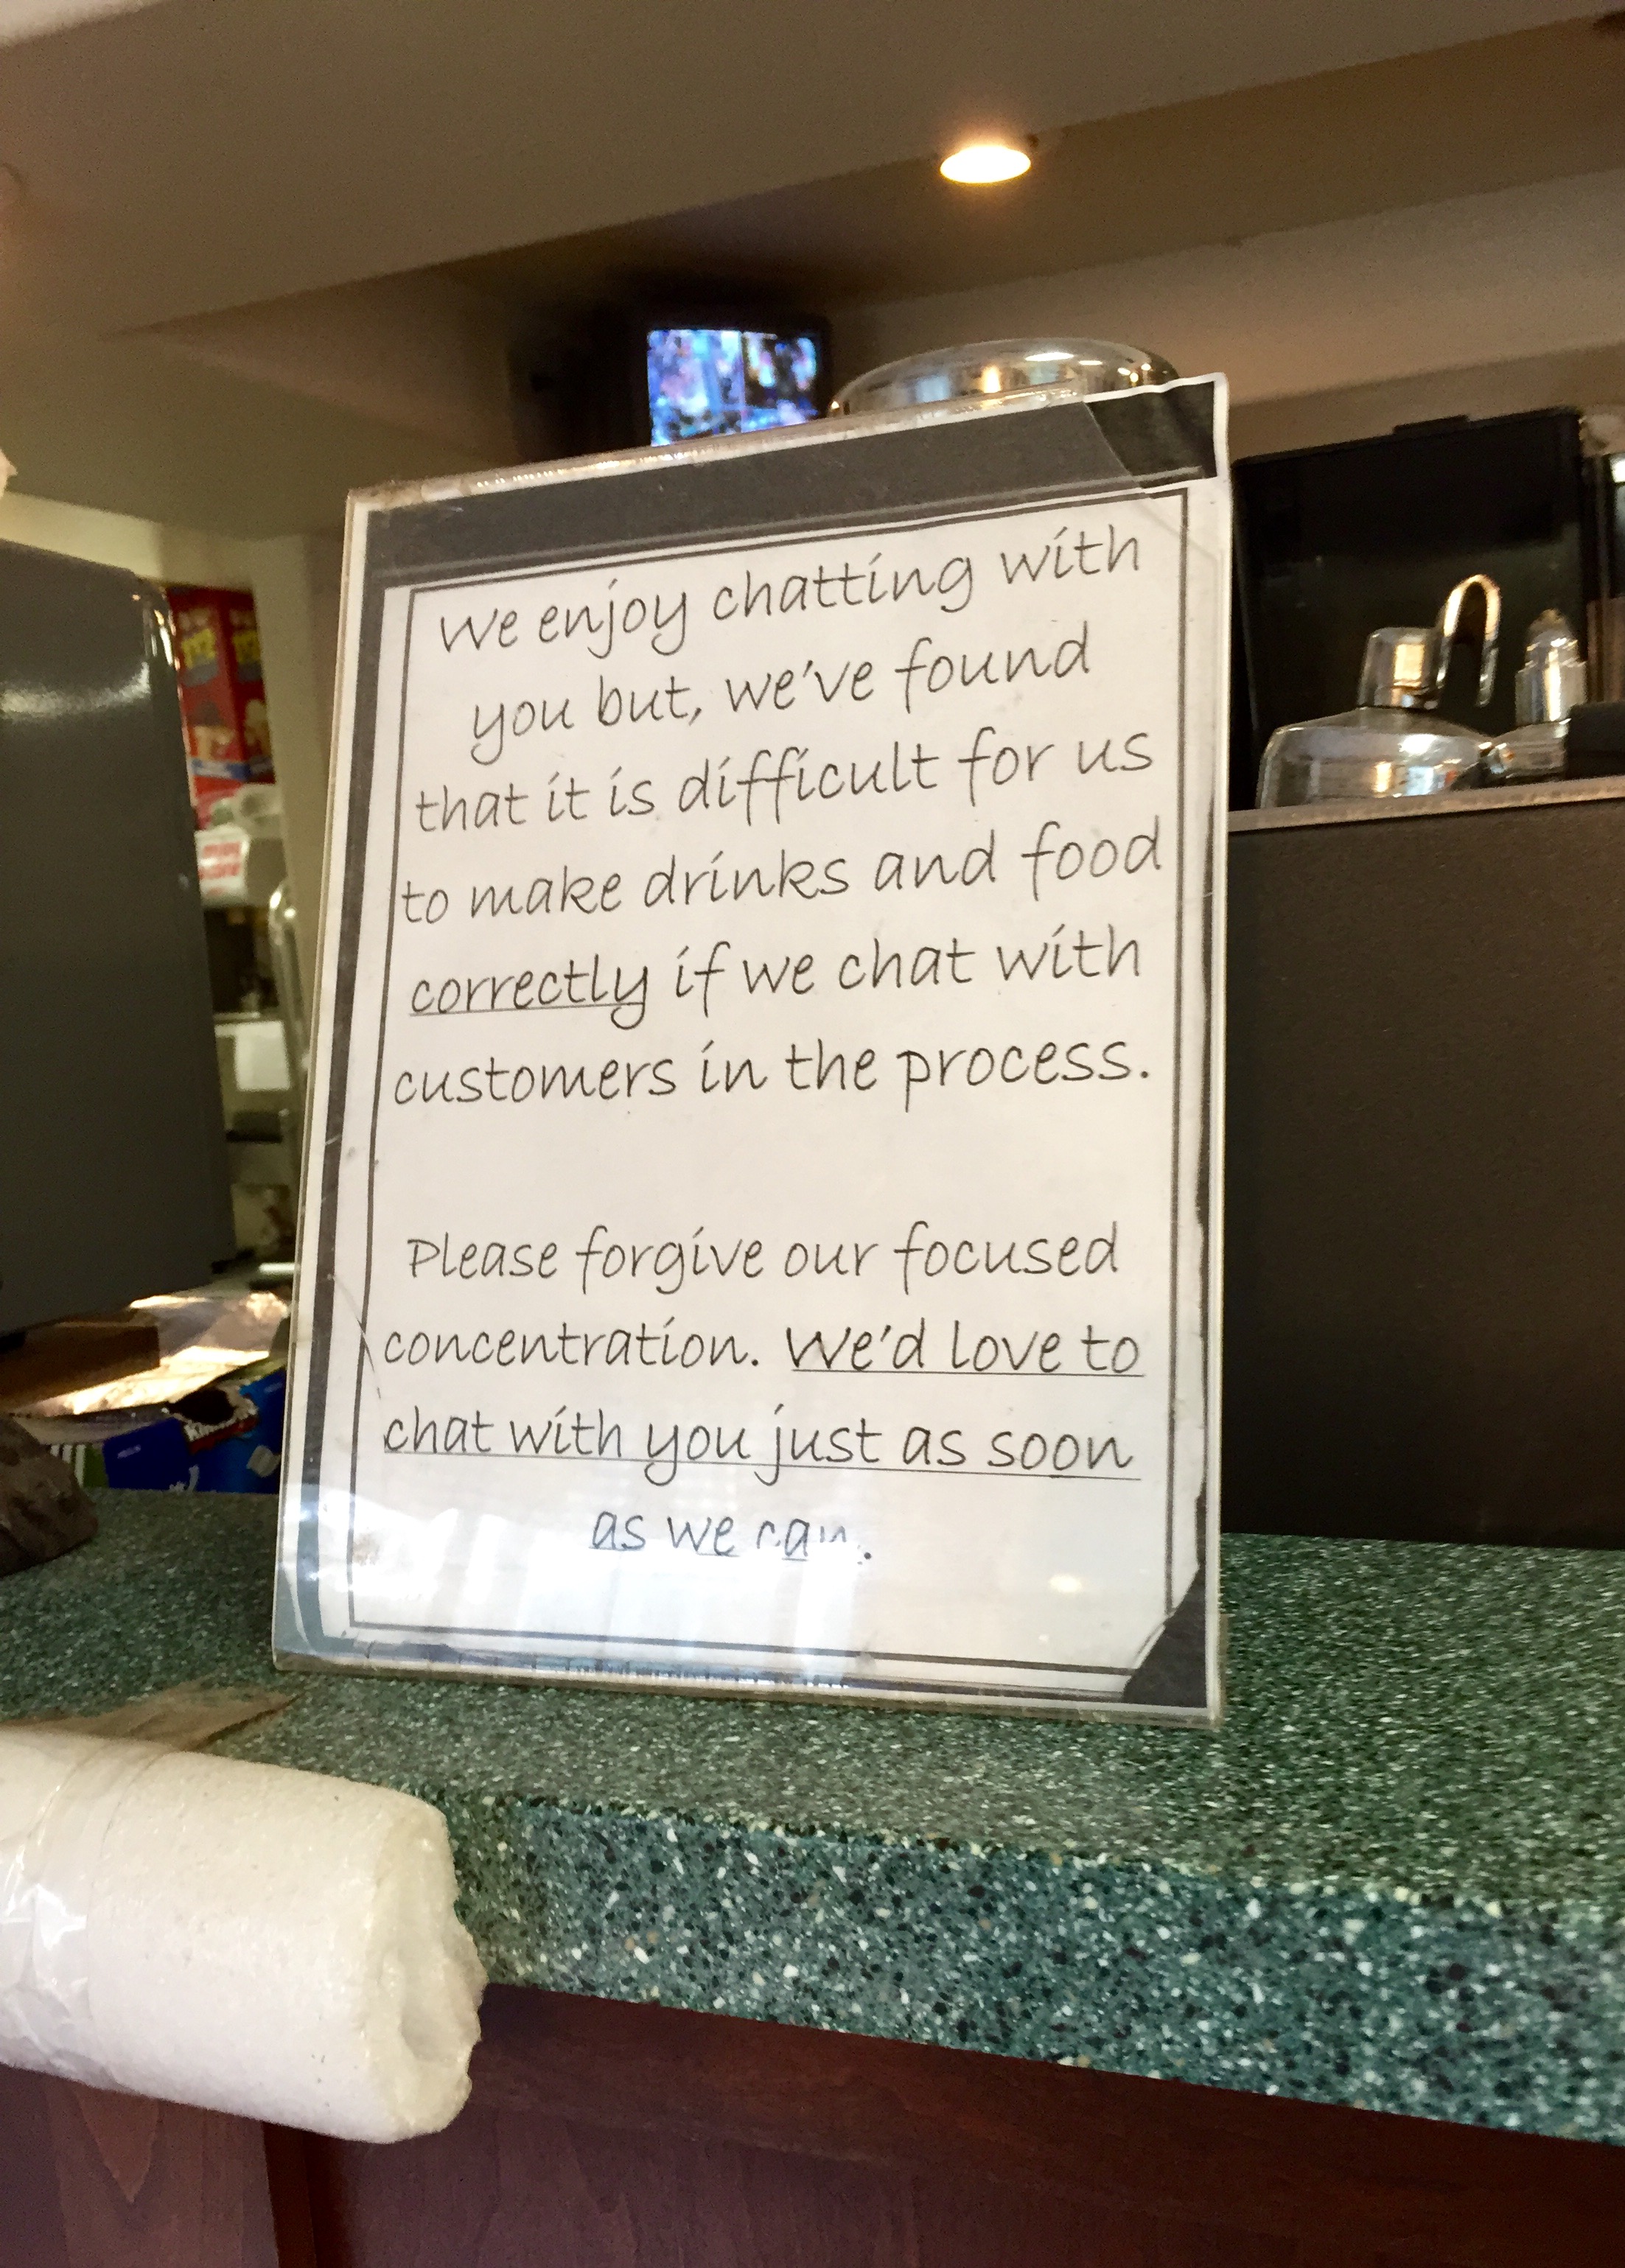 We enjoy chatting with
you but, we've found
that it is difficult for us
to make drinks and food
correctly if we chat with
customers in the process.
Please forgive our focused
concentration. We'd love to
chat with you just as soon
as we can.